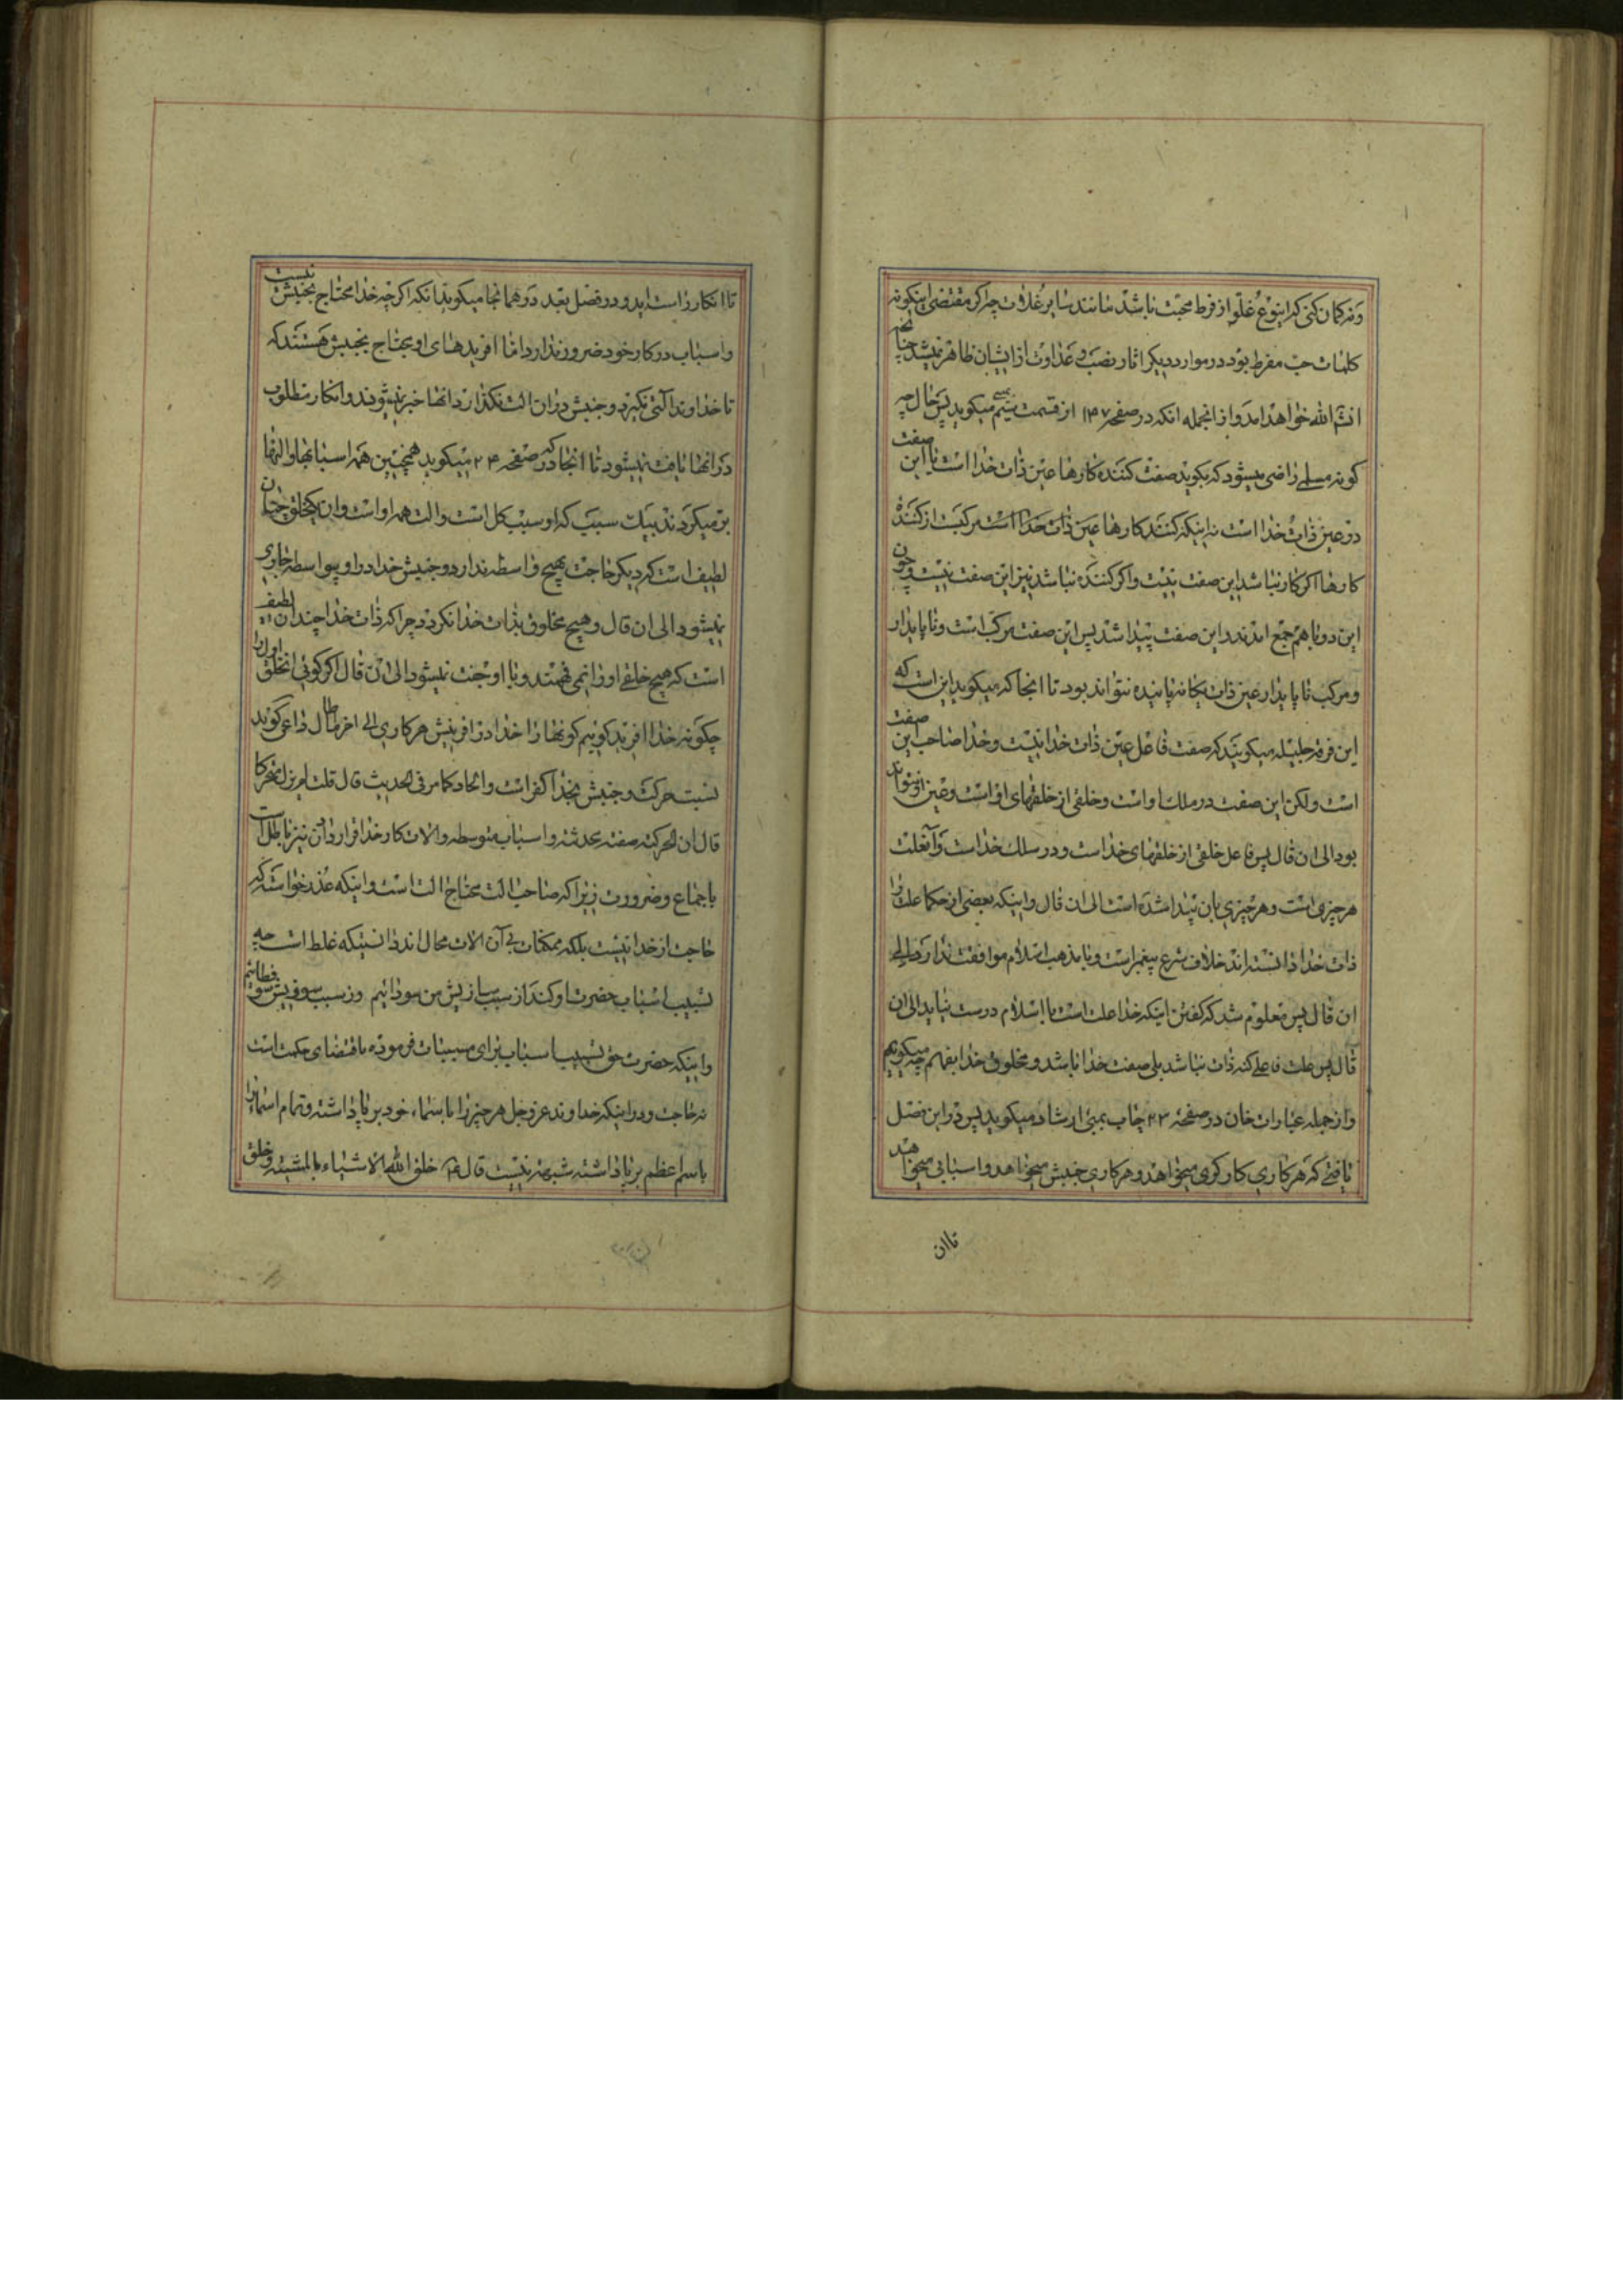 و نه گمان کنی که اینوع غلو از فرط محبت باشد مانند سایر غلات چرا که مقتضی اینگونه
کلمات حب مفرط بود در موارد دیگر اثار نصب و عداوت از ایشان ظاهر نمیشد چنانچه
انشاالله خواهد امد و از انجمله انکه در صفحه ۱۴۷ از قسمت میگوید پس حال چه
کونه مسلمی راضی میشود که بگوید صفت کننده کارها عین ذات خدا است با این صفت
در عین ذات خدا است نه اینکه کننده کارها عین ذات خدا است مرکب است از کننده
کارها اگر کار نباشد این صفت نیست و اگر کننده نباشد نیز این صفت نیست و چون
این دو باهم جمع امدند این صفت پیدا شد پس این صفت مرکب است و ناپایدار
و مرکب ناپایدار عین ذات یگانه پاینده نتواند بود تا انجا که میگوید این است که
این فرقه جلیله میگویند که صفت فاعل عین ذات خدا نیست و خدا صاحب این صفت
است و لکن این صفت در ملک او است و خلقی از خلقهای او است و عین او نتواند
بود الی ان قال پس فاعل خلقی از خلقهای خداست و در ملک خداست و آنعلت
هر چیزی است و هر چیزی بان پیدا شده است الی ان قال و اینکه بعضی از حکما علت را
ذات خدا دانسته اند خلاف شرع پیغمبر است و با مذهب اسلام موافقت ندارد الی
ان قال پس معلوم شد که گفتن اینکه خدا علت است با اسلام درست نیاید الی ان
قال پس علت فاعلی کنه ذات نباشد بلی صفت خدا باشد و مخلوق خدا بفهم چه میگویم
و از جمله عبارات خان در صفحه ۲۳ چاپ بمبئی ارشاد میگوید پس در این فصل
یافتی که هر کاری کارگری میخواهد و هر کاری جنبش میخواهد و اسبابی میخواهد
تا ان
تا انکار راست اید و در فصل بعد در همانجا میگوید بدانکه اگر چه خدا محتاج بجنبش نیست
و اسباب در کار خود ضرور ندارد اما افریدهای او محتاج بجنبش هستند که
تا خداوند آلتی نگیرد و جنبش در ان الت نگذارد انها خبر نمیشوند و انکار مطلوب
در انها یافت نمیشود تا انجا که در صفحه ۲۴ میگوید همچنین همه اسبابها و التها
بر میگردند بیک سبب که او سبب کل است و الت همه او است و ان یک خلق چنان
لطیف است که دیگر حاجت بهیچ واسطه ندارد و جنبش خدا در او بیواسطه جاری
میشود الی ان قال و هیچ مخلوق بذات خدا نگردد چرا که ذات خدا چندان لطیف
است که هیچ خلقی او را نمی فهمند و با او جفت نمیشود الی ان قال اگر گوئی انخلق اول را
چگونه خدا افرید گوئیم گوئها را خدا در افرینش هر کاری الی اخر ما قال داعی گوید
نسبت حرکت و جنبش بخدا کفر است و الحاد کما مر فی الحدیث قال قلت لم یزل متحرکا
قال ان الحرکة صفة محدثة و اسباب متوسطه و الات کار خدا قرار دادن نیز باطل است
باجماع و ضرورت زیرا که صاحب الت محتاج الت است و اینکه عذر خواسته که
حاجت از خدا نیست بلکه ممکنات بی آن الات محال اند دانستیکه غلط است چه
تسبیب اسباب حضرت او کند از سبب سازیش من سودائیم و ز سبب سوزیش سوفسطائیم
و اینکه حضرت حق تسبیب اسباب برای مسببات فرموده باقتضای حکمت است
نه حاجت و در اینکه خداوند عز و جل هر چیز را باسماء خود بر پا داشته و تمام اسماء را
باسم اعظم بر پا داشته شبهه نیست قال ع خلق الله الاشیاء بالمشیة و خلق